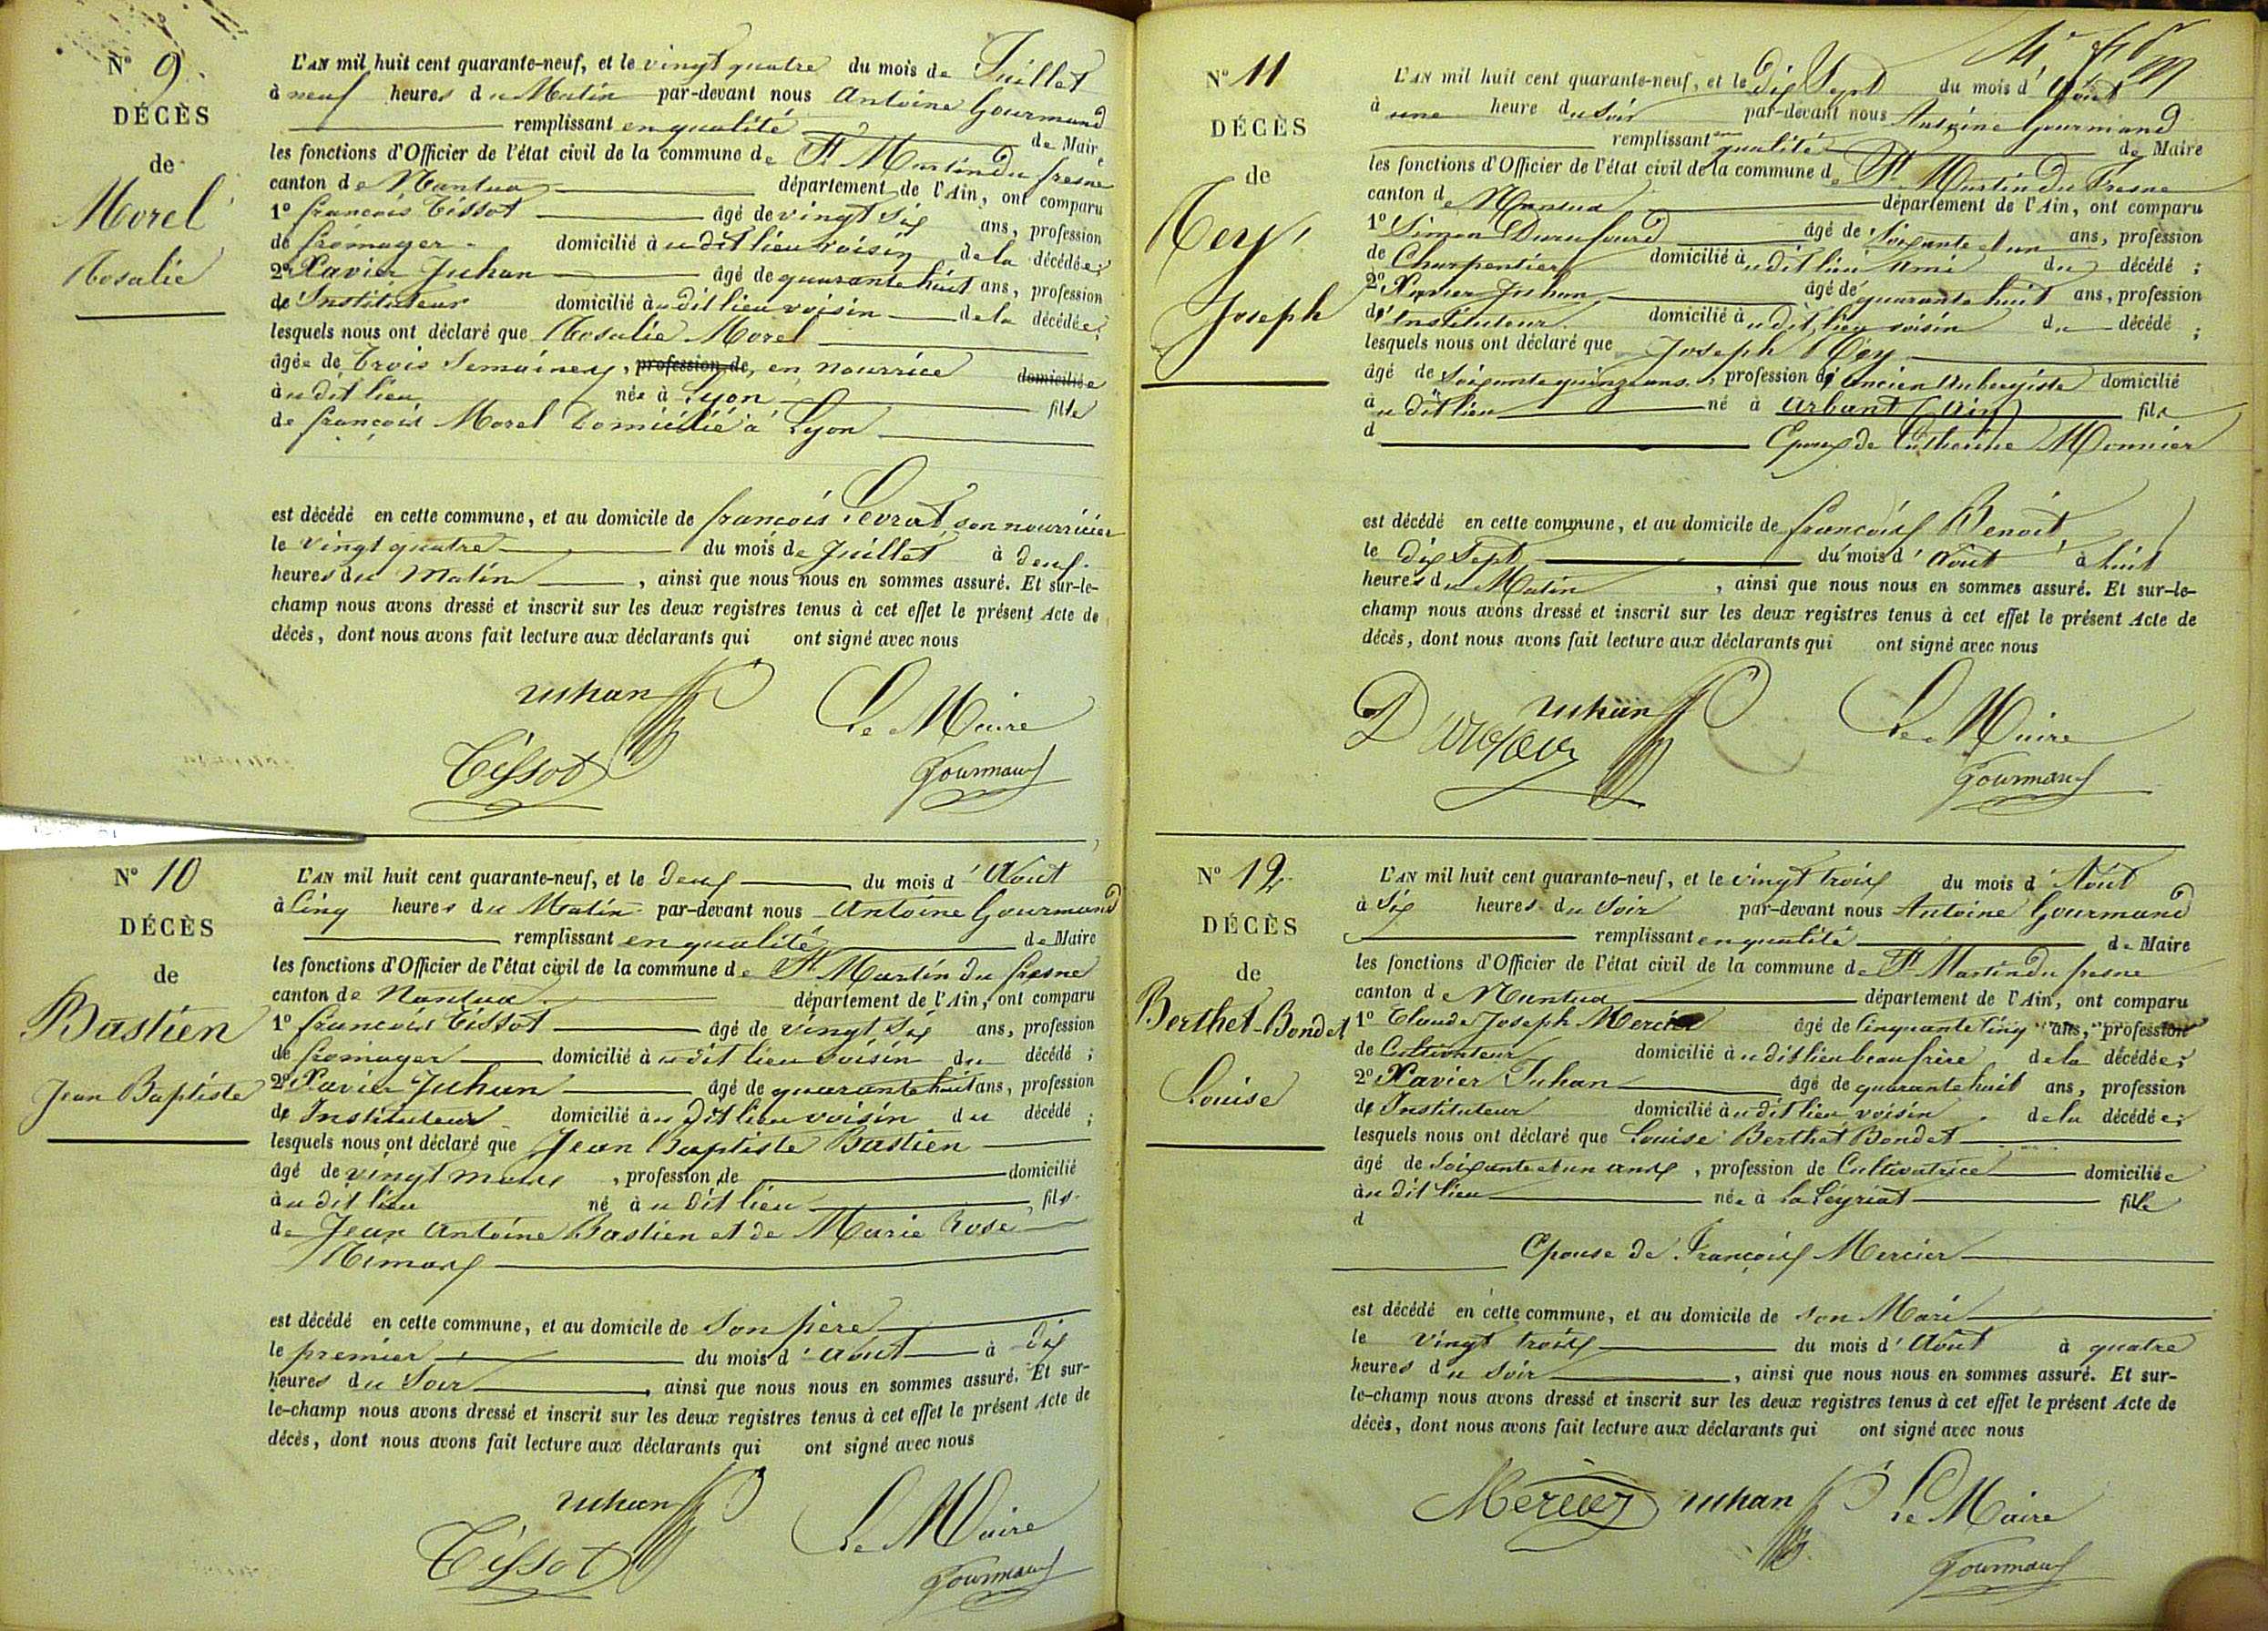 N° 9
DÉCÈS
de
Morel
Rosalie
L'AN mil huit cent quarante-neuf, et le vingt quatre du mois de Juillet
à neuf heures du Matin par-devant nous Antoine Gourmand
remplissant en qualité de Maire
les fonctions d'Officier de l'état civil de la commune de St Martin du fresne
canton de Nantua département de l'Ain, ont comparu
1° françois Tissot âgé de vingt six ans, profession
de fromager domicilié à udit lieu voisin de la décédée;
2° Xavier Juhan âgé de quarante huit ans, profession
de Instituteur domicilié à udit lieu voisin de la décédée;
lesquels nous ont déclaré que Rosalie Morel
âgée de trois Semaines, profession de, en nourrice domiciliée
à udit lieu née à Lyon fille
de françois Morel Domicilié à Lyon
est décédé en cette commune, et au domicile de françois Levrat, son nourricier
le vingt quatre du mois de Juillet à deux
heures du Matin, ainsi que nous nous en sommes assuré. Et sur-le-
champ nous avons dressé et inscrit sur les deux registres tenus à cet effet le présent Acte de
décès, dont nous avons fait lecture aux déclarants qui ont signé avec nous
Juhan Le Maire
Tissot Gourmand
N° 10
DÉCÈS
de
Bastien
Jean Baptiste
L'AN mil huit cent quarante-neuf, et le deux du mois d'Aout
à Cinq heures du Matin par-devant nous Antoine Gourmand
remplissant en qualité de Maire
les fonctions d'Officier de l'état civil de la commune de St Martin du fresne
canton de Nantua département de l'Ain, ont comparu
1° françois Tissot âgé de vingt six ans, profession
de fromager domicilié à udit lieu voisin du décédé;
2° Xavier Juhan âgé de quarante huit ans, profession
de Instituteur domicilié à udit lieu voisin du décédé;
lesquels nous ont déclaré que Jean Baptiste Bastien
âgé de vingt mois, profession de domicilié
à udit lieu né à udit lieu fils
de Jean Antoine Bastien et de Marie Rose
est décédé en cette commune, et au domicile de son père
le premier du mois d'Aout à dix
heures du Soir, ainsi que nous nous en sommes assuré. Et sur-
le-champ nous avons dressé et inscrit sur les deux registres tenus à cet effet le présent Acte de
décès, dont nous avons fait lecture aux déclarants qui ont signé avec nous
Juhan Le Maire
Tissot Gourmand
N° 11
DÉCÈS
de
Rey
Joseph
L'AN mil huit cent quarante-neuf, et le dix Sept du mois d'Août
à une heure du Soir par-devant nous Antoine Gourmand
remplissant en qualité de Maire
les fonctions d'Officier de l'état civil de la commune de St Martin du Fresne
canton de Nantua département de l'Ain, ont comparu
1° Simon Durafourd âgé de Soixante et un ans, profession
de Charpentier domicilié à udit lieu ami du décédé;
2° Xavier Juhan âgé de quarante huit ans, profession
d'Instituteur domicilié à udit lieu voisin du décédé;
lesquels nous ont déclaré que Joseph Rey
âgé de Soixante quinze ans, profession d'ancien Aubergiste domicilié
à udit lieu né à Arbant (Ain) fils
d Epoux de Catherine Monnier
est décédé en cette commune, et au domicile de françois Benoit
le dix Sept du mois d'Aout à huit
heures du Matin, ainsi que nous nous en sommes assuré. Et sur-le-
champ nous avons dressé et inscrit sur les deux registres tenus à cet effet le présent Acte de
décès, dont nous avons fait lecture aux déclarants qui ont signé avec nous
Juhan Le Maire
Gourmand
N° 12
DÉCÈS
de
Berthet-Bondet
Louise
L'AN mil huit cent quarante-neuf, et le vingt trois du mois d'Août
à Six heures du Soir par-devant nous Antoine Gourmand
remplissant en qualité de Maire
les fonctions d'Officier de l'état civil de la commune de St Martin du fresne
canton de Nantua département de l'Ain, ont comparu
1° Claude Joseph Mercier âgé de Cinquante Cinq ans, profession
de Cultivateur domicilié à udit lieu beau frère de la décédée;
2° Xavier Juhan âgé de quarante huit ans, profession
de Instituteur domicilié à udit lieu voisin de la décédée;
lesquels nous ont déclaré que Louise Berthet Bondet
âgé de Soixante et un ans, profession de Cultivatrice domiciliée
à udit lieu née à La Leyriat fille
d
Epouse de François Mercier
est décédé en cette commune, et au domicile de son Mari
le vingt trois du mois d'Aout à quatre
heures du Soir, ainsi que nous nous en sommes assuré. Et sur-
le-champ nous avons dressé et inscrit sur les deux registres tenus à cet effet le présent Acte de
décès, dont nous avons fait lecture aux déclarants qui ont signé avec nous
Mercier Juhan Le Maire
Gourmand